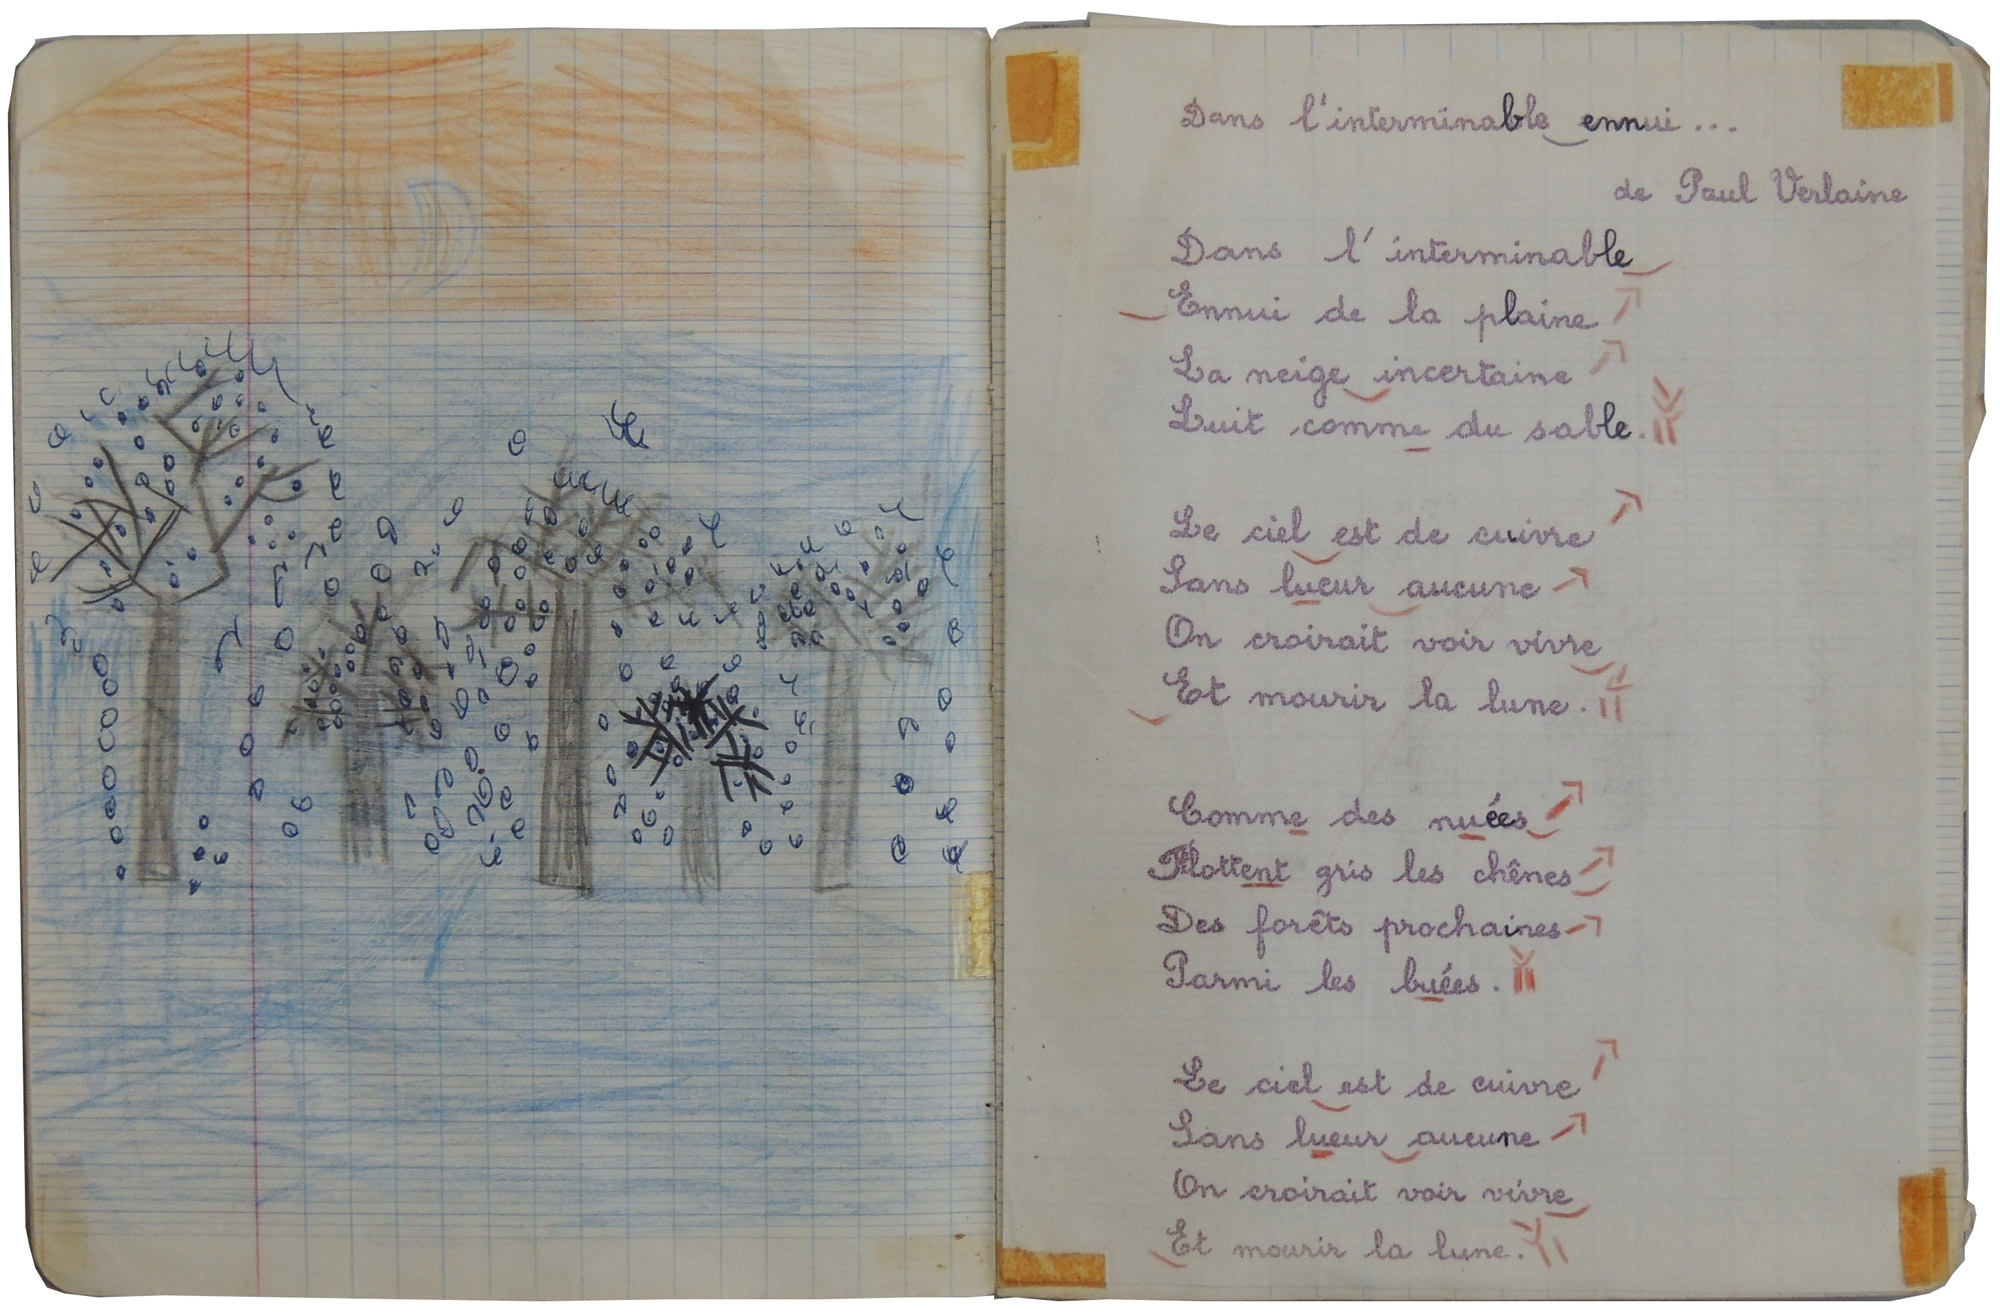 Dans l'interminable ennui...
de Paul Verlaine
Dans l'interminable
Ennui de la plaine
La neige incertaine
Luit comme du sable.
Le ciel est de cuivre
Sans lueur aucune
On croirait voir vivre
Et mourir la lune.
Comme des nuées
Flottent gris les chênes
Des forêts prochaines
Parmi les buées.
Le ciel est de cuivre
Sans lueur aucune
On croirait voir vivre
Et mourir la lune.